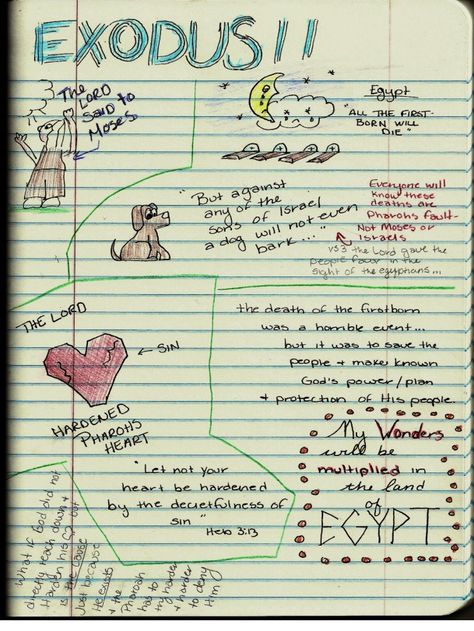 EXODUS 11
The
LORD
said to
Moses
Egypt
"ALL THE FIRST-
BORN WILL
DIE"
"But against
any of the
sons of Israel
a dog will not even
bark..."
Everyone will
know these
deaths are
Pharohs fault-
Not Moses or
Israels
vs 3 the Lord gave the
people favor in the
sight of the egyphans...
THE LORD
← SIN
HARDENED
PHAROHS
HEART
the death of the firstborn
was a horrible event...
but it was to save the
people + make known
God's power/plan
+ protection of His people.
"Let not your
heart be hardened
by the decietfulness of
sin"
Heb 3:13
My Wonders
will be
multiplied in
the land
of
EGYPT
What if God did not
directly reach down +
Harden his ♡ but
is the cause
Just because
He exists
+ the
Pharoah
has to
try harder
+ harder
to deny
Him